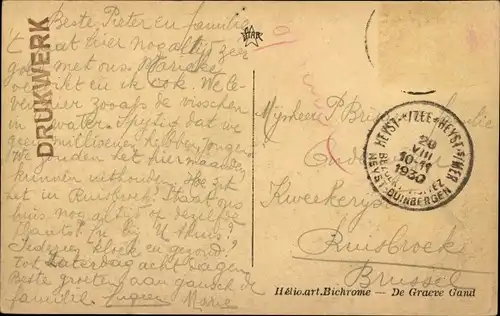 DRUKWERK
STAR
Beste Pieter en familie
't gaat hier nog altijd zeer
goed met ons. Marieke
en ik ook. We le-
ven hier zooals de visschen
in 't water. Spijtig dat we
geen millioenen hebben, jongens
We zouden het hier maanden
kunnen uithouden. Hoe zit
het in Ruisbroek? Staat ons
huis nog altijd op dezelfde
plaats? in bij U thuis?
Iedereen kloek en gezond?
tot Zaterdag acht dagen
Beste groeten aan gansch de
familie. Marie
HEYST * A/ZEE * HEYST S/MER
20
VIII
10-11
1930
HEYST-DUINBERGEN
Mijnheer P.
Kweekerij
Ruisbroek
Brussel
Hélio.art.Bichrome — De Graeve Gand